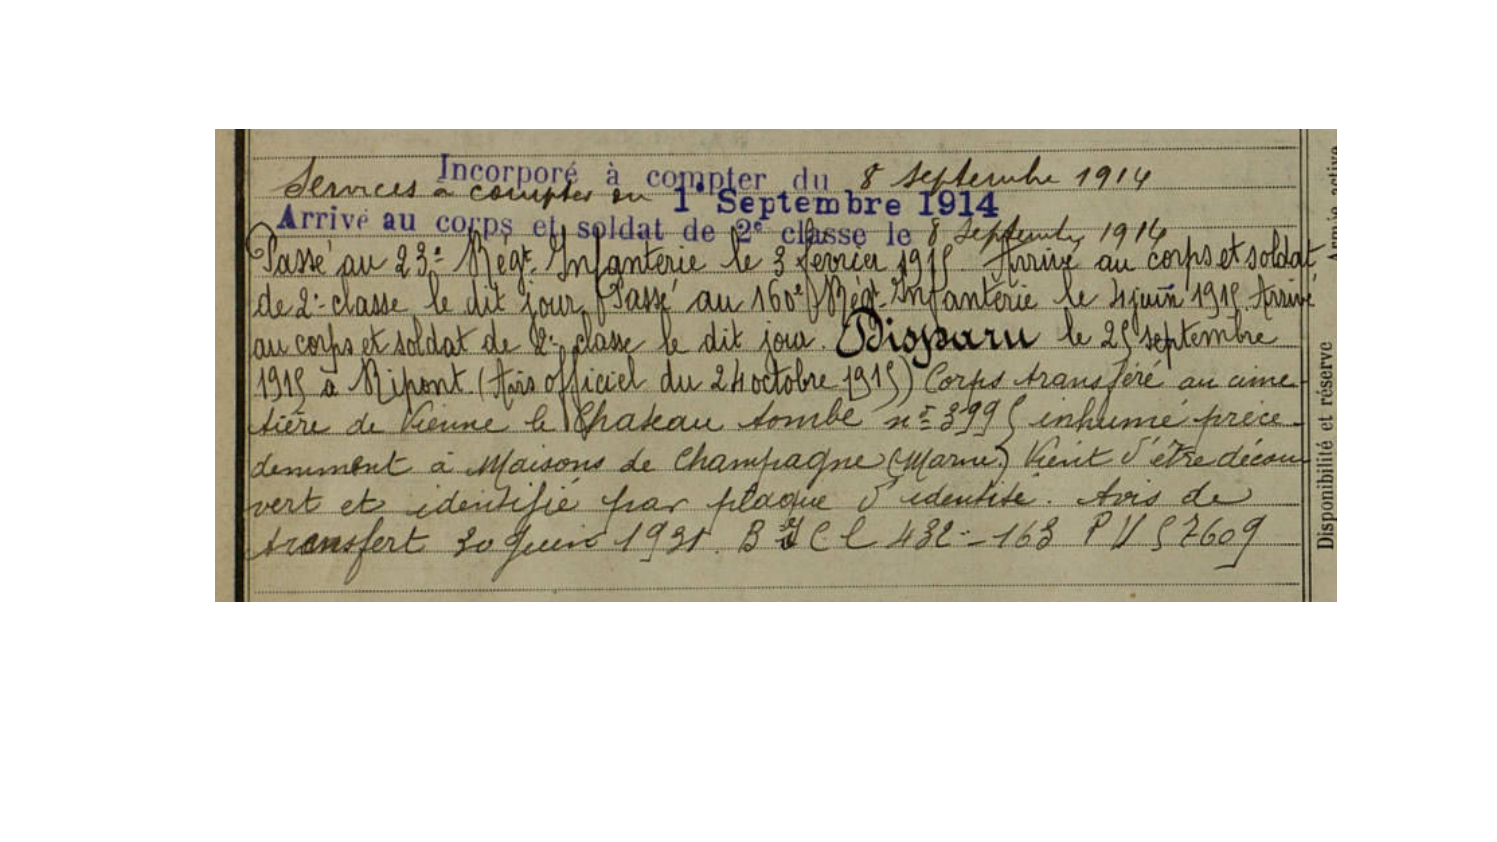 Incorporé à compter du 8 Septembre 1914
Services à compter du 1er Septembre 1914
Arrivé au corps et soldat de 2e classe le 8 Septembre 1914
Passé au 23e Régt Infanterie le 3 février 1915. Arrivé au corps et soldat
de 2e classe le dit jour. Passé au 160e Régt Infanterie le 4 juin 1915. Arrivé
au corps et soldat de 2e classe le dit jour. Disparu le 25 septembre
1915 à Ripont. (Avis officiel du 24 octobre 1915) Corps transféré au cime-
tière de Vienne le Chateau tombe no 3995 inhumé précé-
demment à Maisons de Champagne (Marne) Vient d'être décou-
vert et identifié par plaque d'identité. Avis de
transfert 30 Juin 1931. B C l 432-163 PV 57609
Armée active
Disponibilité et réserve